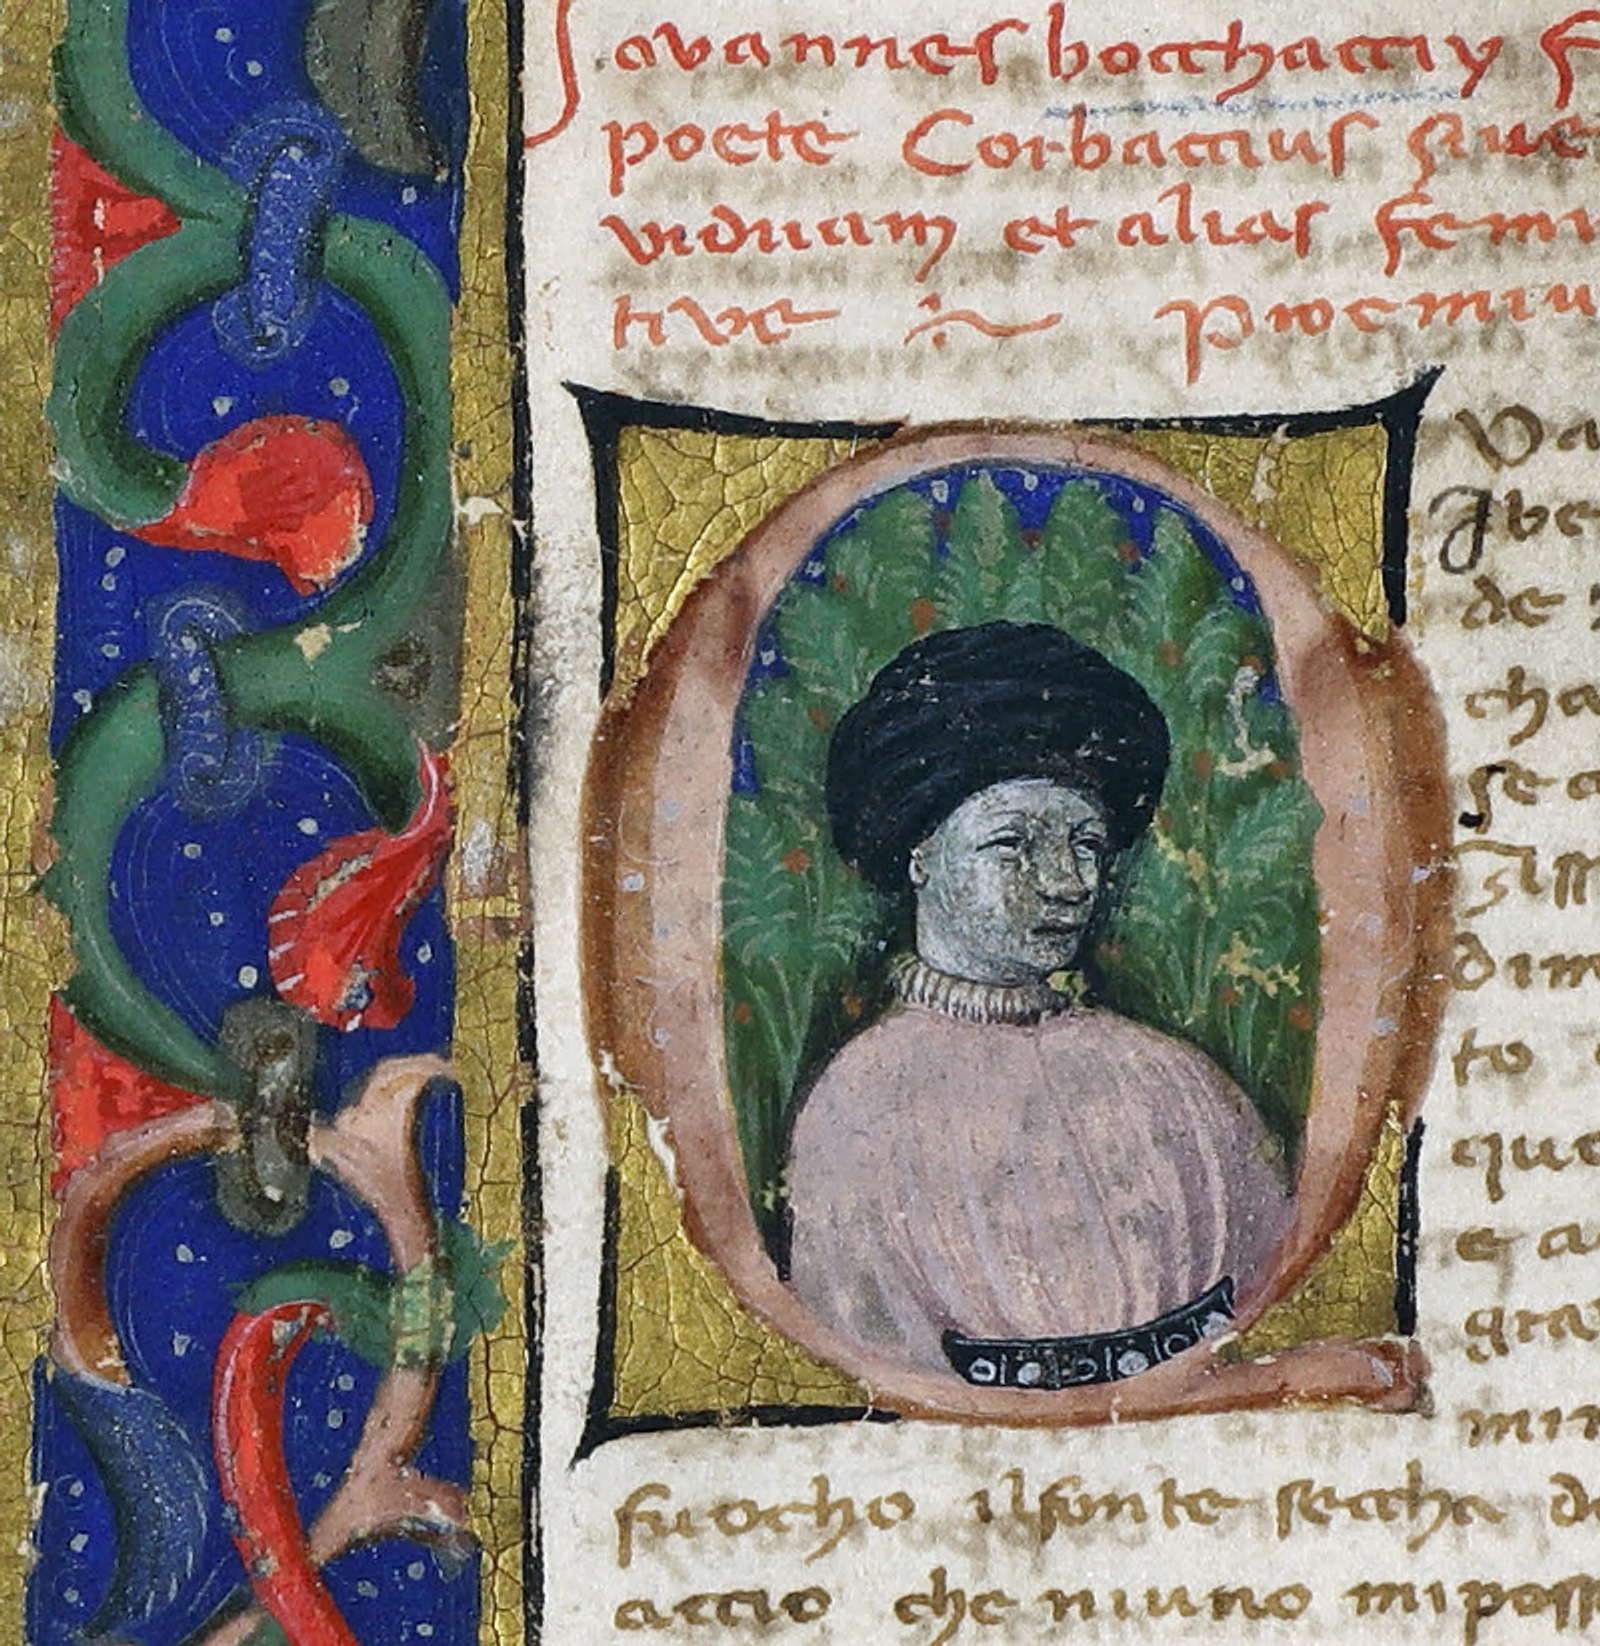 Iovannes bocchaccij f
poete Corbaccius siue
viduam et alias femi
tive Proemiu
Q
Va
I be
de
cha
se
dim
to
que
e a
gra
min
fuocho il fonte seccha de
accio che niuno mi poss